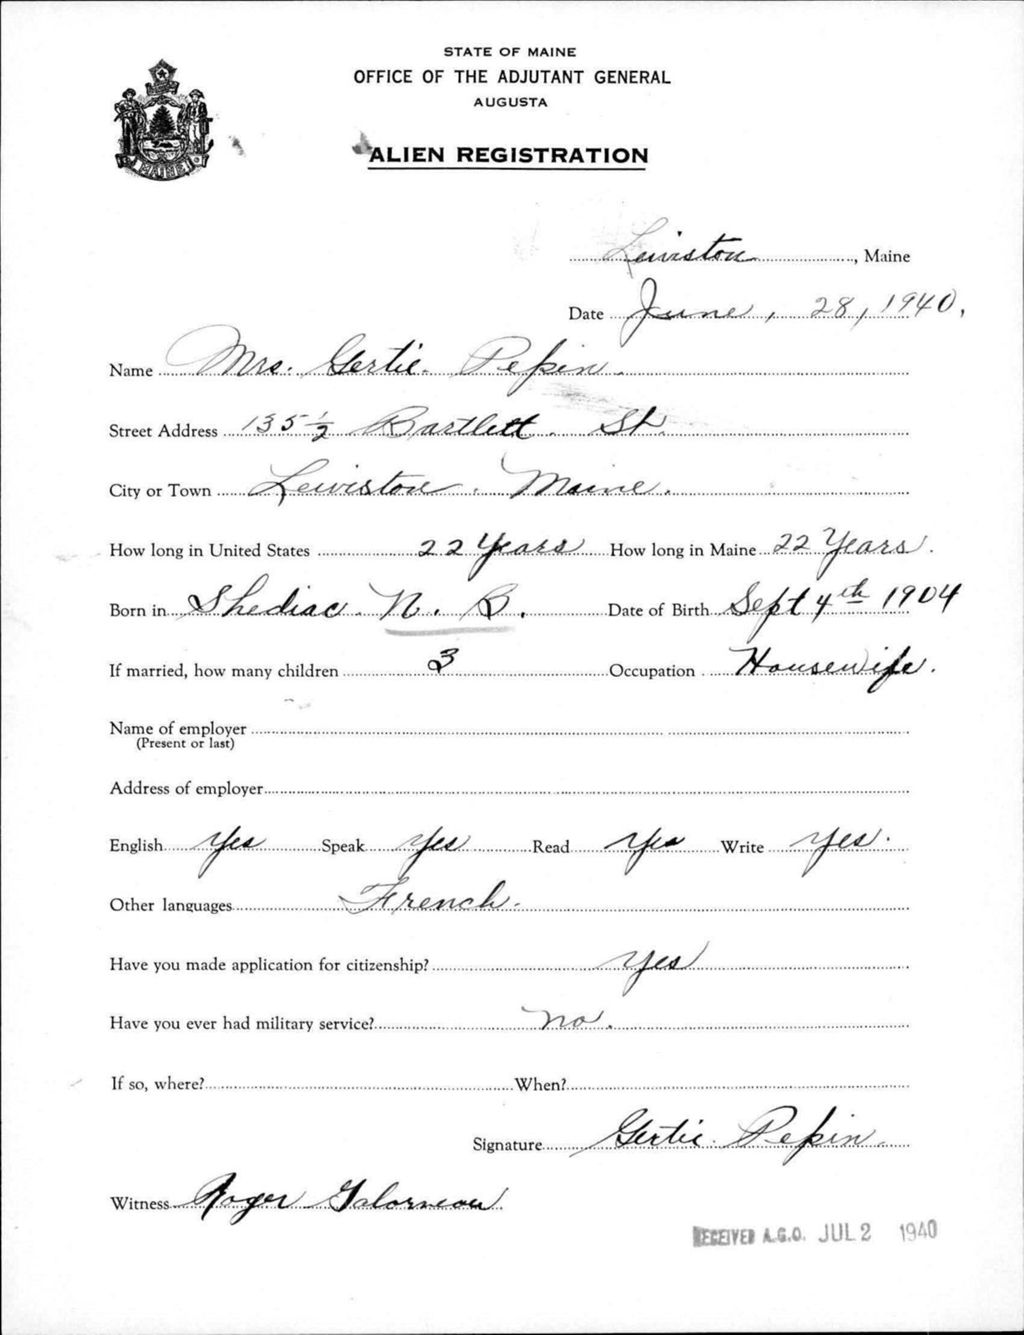 STATE OF MAINE
OFFICE OF THE ADJUTANT GENERAL
AUGUSTA
ALIEN REGISTRATION
MAINE
Lewiston, Maine
Date June, 28, 1940.
Name Mrs. Gertie. Pepin.
Street Address 135 1/2 Bartlett. St.
City or Town Lewiston. Maine.
How long in United States 22 Years How long in Maine 22 Years.
Born in Shediac. N. B. Date of Birth Sept 4th 1904
If married, how many children 3 Occupation Housewife.
Name of employer
(Present or last)
Address of employer
English Yes Speak Yes Read Yes Write Yes.
Other languages French.
Have you made application for citizenship? Yes
Have you ever had military service? no.
If so, where? When?
Signature Gertie. Pepin.
Witness Roger
RECEIVED A.G.O. JUL 2 1940